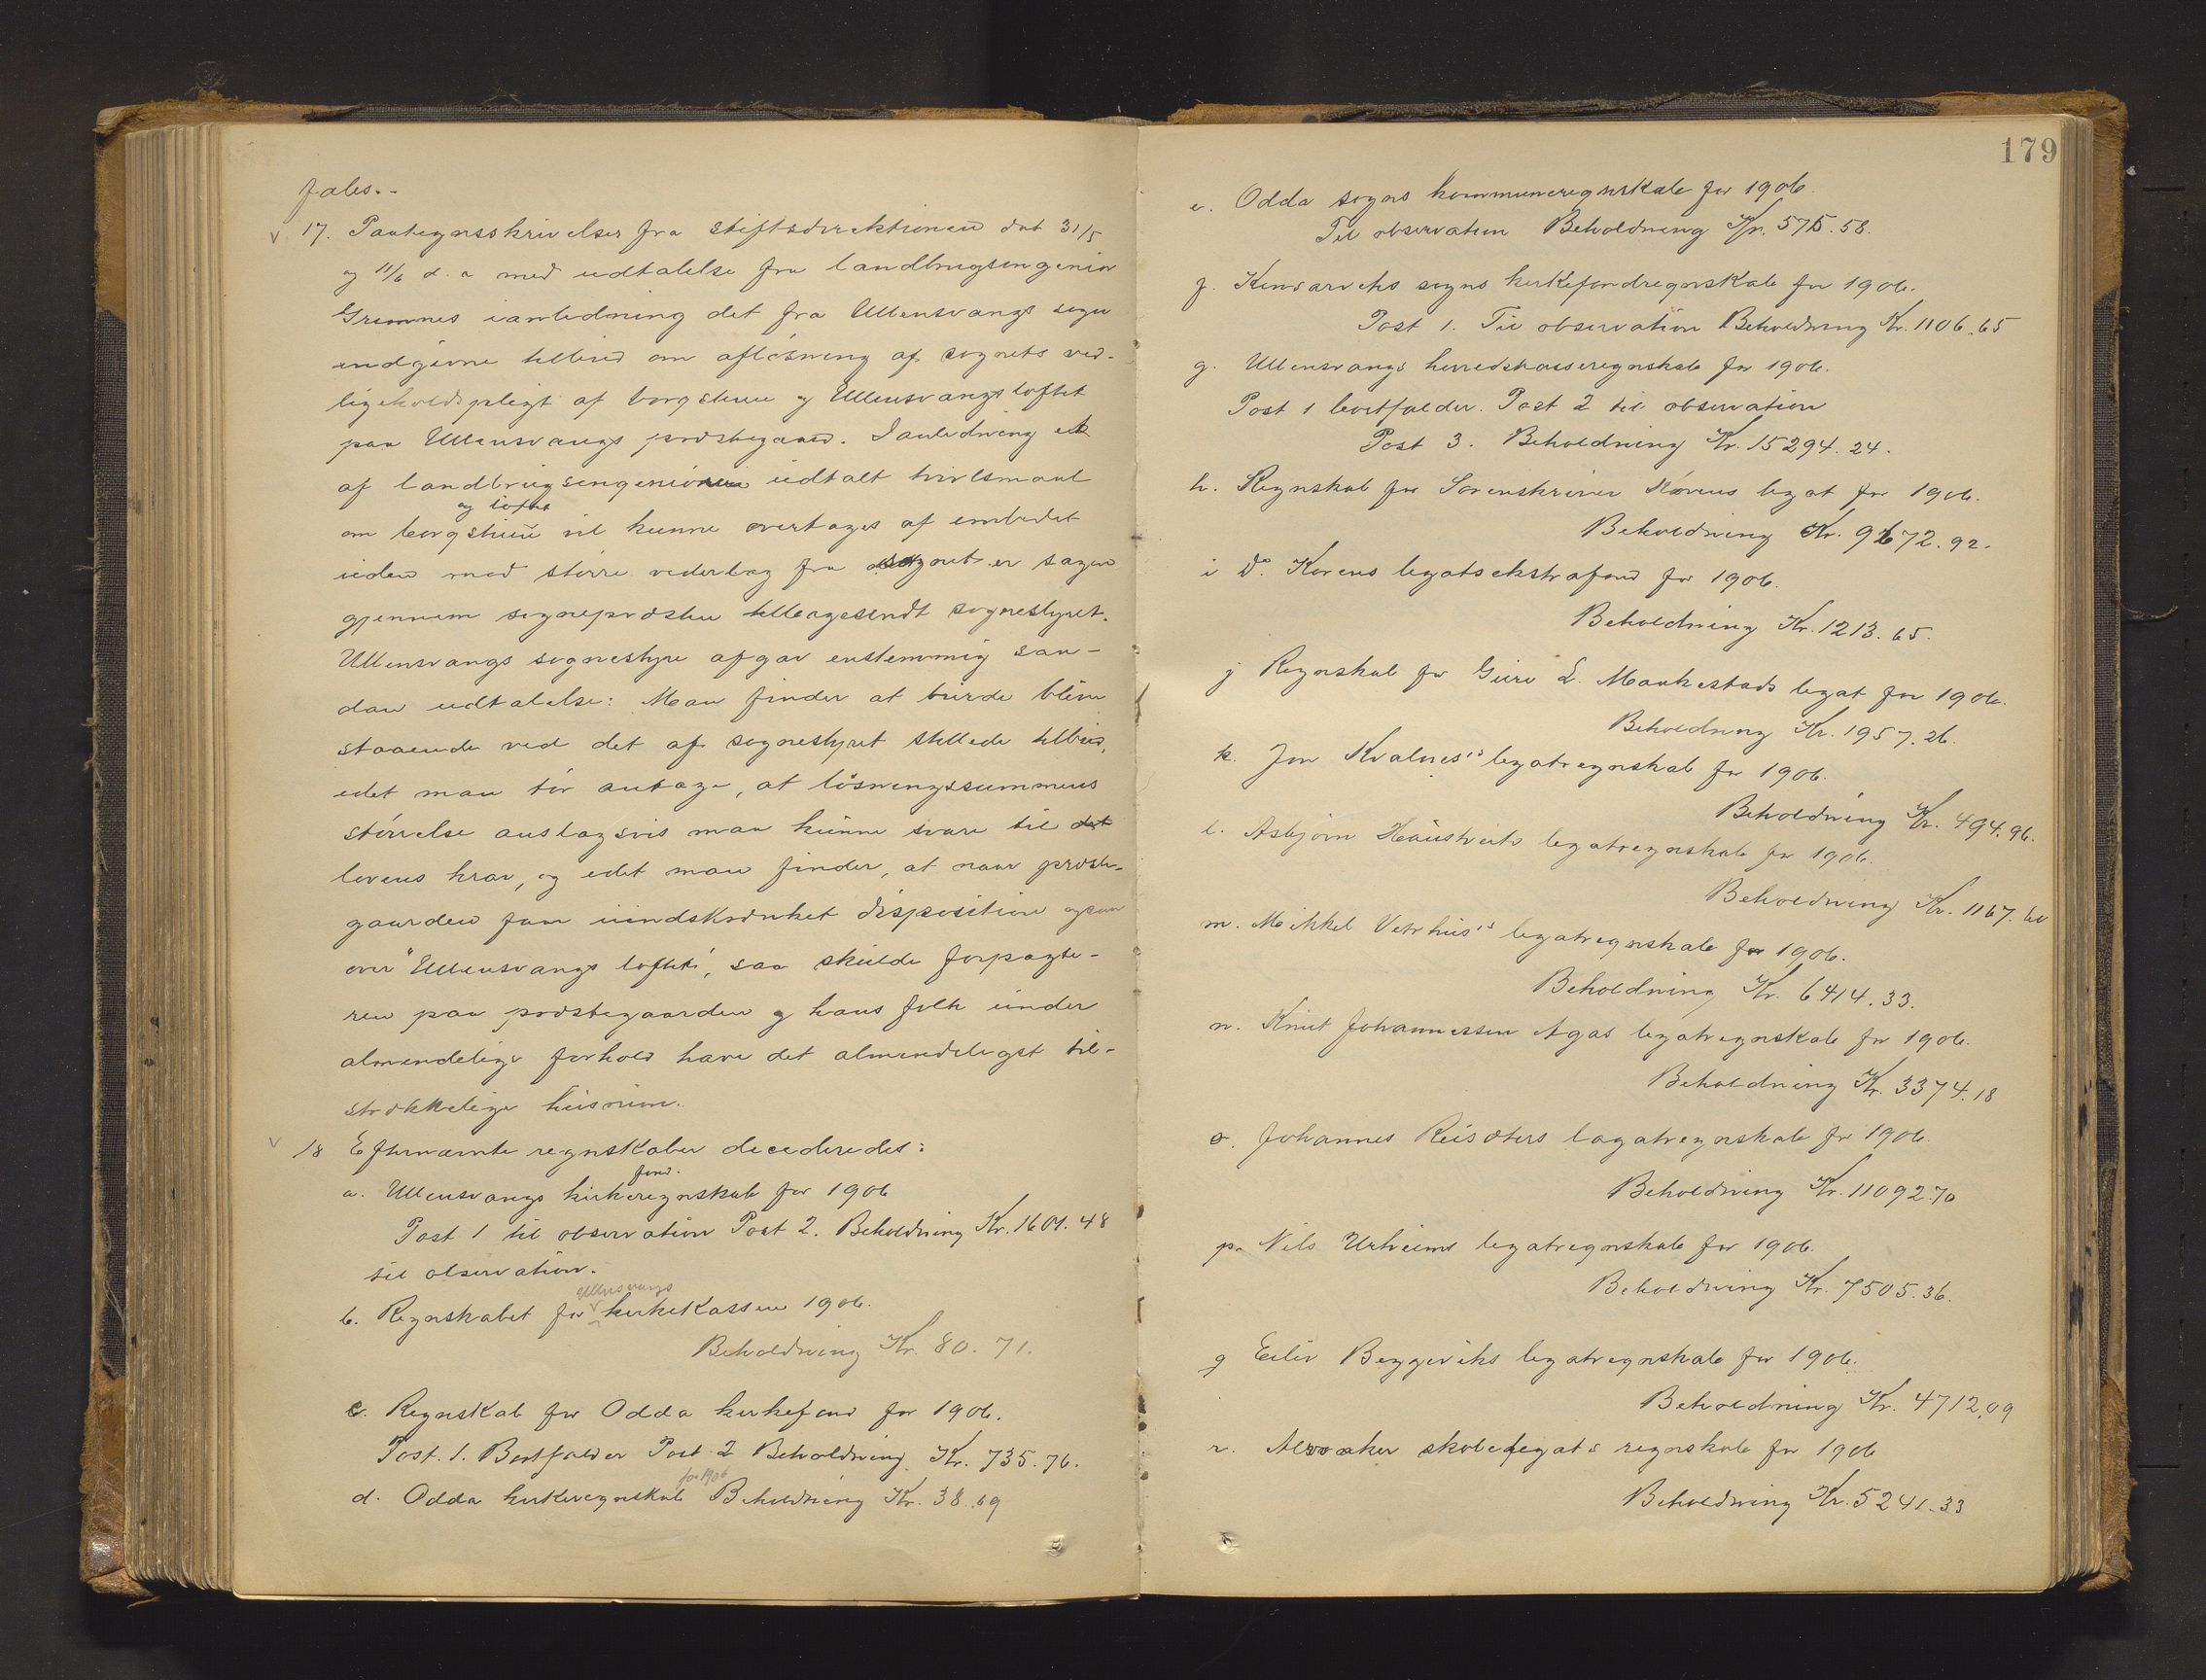 fales.-
17. Paategnsskrivelser fra stiftsdirektionen dat 31/5
og 11/6 d. a med udtalelse fra landbrugsingeniør
Grimnes ianledning det fra Ullensvangs sogn
indgivne tilbud om afløsning af sognets ved-
ligeholdspligt af borgstuen og Ullensvangsloftet
paa Ullensvangs prestegaard. I anledning et
af landbrugsingeniøren udtalt tvivlsmaal
og loftet
om borgstuen vil kunne overtages af embedet
uden mod større vederlag fra sognet er sagen
gjennem sogneprosten tilbagesendt sognestyret.
Ullensvangs sognestyre afgav enstemmig saa-
dan udtalelse: Man finder at burde blive
staaende ved det af sognestyret stillede tilbud,
idet man tør antage, at løsningssummens
størrelse anslagsvis man kunne svare til
lovens krav, og idet man finder, at naar preste-
gaarden faar uindskrænket disposition ogsaa
over "Ullensvangs loftet", saa skulde forpagte-
ren paa prestegaarden og hans folk under
almindelige forhold have det almindeligst til-
strækkelige husrum.
18 Efternævnte regnskaber decideredes:
fond.
a. Ullensvangs kirkeregnskab for 1906
Post 1 til observation Post 2. Beholdning Kr. 1601.48
til observation.
Ullensvangs
b. Regnskabet for kirkekassen 1906.
Beholdning Kr. 80.71.
c. Regnskab for Odda kirkefond for 1906.
Post. 1. Bortfalder Post 2 Beholdning Kr. 735.76.
for 1906
d. Odda kirkeregnskab Beholdning Kr. 38.69
179
e. Odda sogns kommuneregnskab for 1906
Til observation Beholdning Kr. 575.58.
f. Kinsarviks sogns kirkefondregnskab for 1906.
Post 1. Til observation Beholdning Kr. 1106.65
g. Ullensvangs herredskasseregnskab for 1906.
Post 1 bortfalder. Post 2 til observation
Post 3. Beholdning Kr. 15294.24.
h. Regnskab for Sorenskriver Korens legat for 1906.
Beholdning Kr. 9672.92.
i Do. Korens legatsekstrafond for 1906.
Beholdning Kr. 1213.65.
j Regnskab for Guro L. Maakestads legat for 1906.
Beholdning Kr. 1957.26.
k. Jon Kvalnes's legatregnskab for 1906.
Beholdning Kr. 494.96.
l. Asbjørn Haustveits legatregnskab for 1906.
Beholdning Kr. 1167.60
m. Mikkel Vetrhus's legatregnskab for 1906.
Beholdning Kr. 6414.33.
n. Knut Johannessen Agas legatregnskab for 1906.
Beholdning Kr. 3374.18
o. Johannes Reisæters lagatregnskab for 1906.
Beholdning Kr. 11092.70
p. Nils Urheims legatregnskab for 1906.
Beholdning Kr. 7505.36.
q Eiliv Byggeviks legatregnskab for 1906.
Beholdning Kr. 4712.09
r. Alsaker skolelegats regnskab for 1906
Beholdning Kr. 5241.33